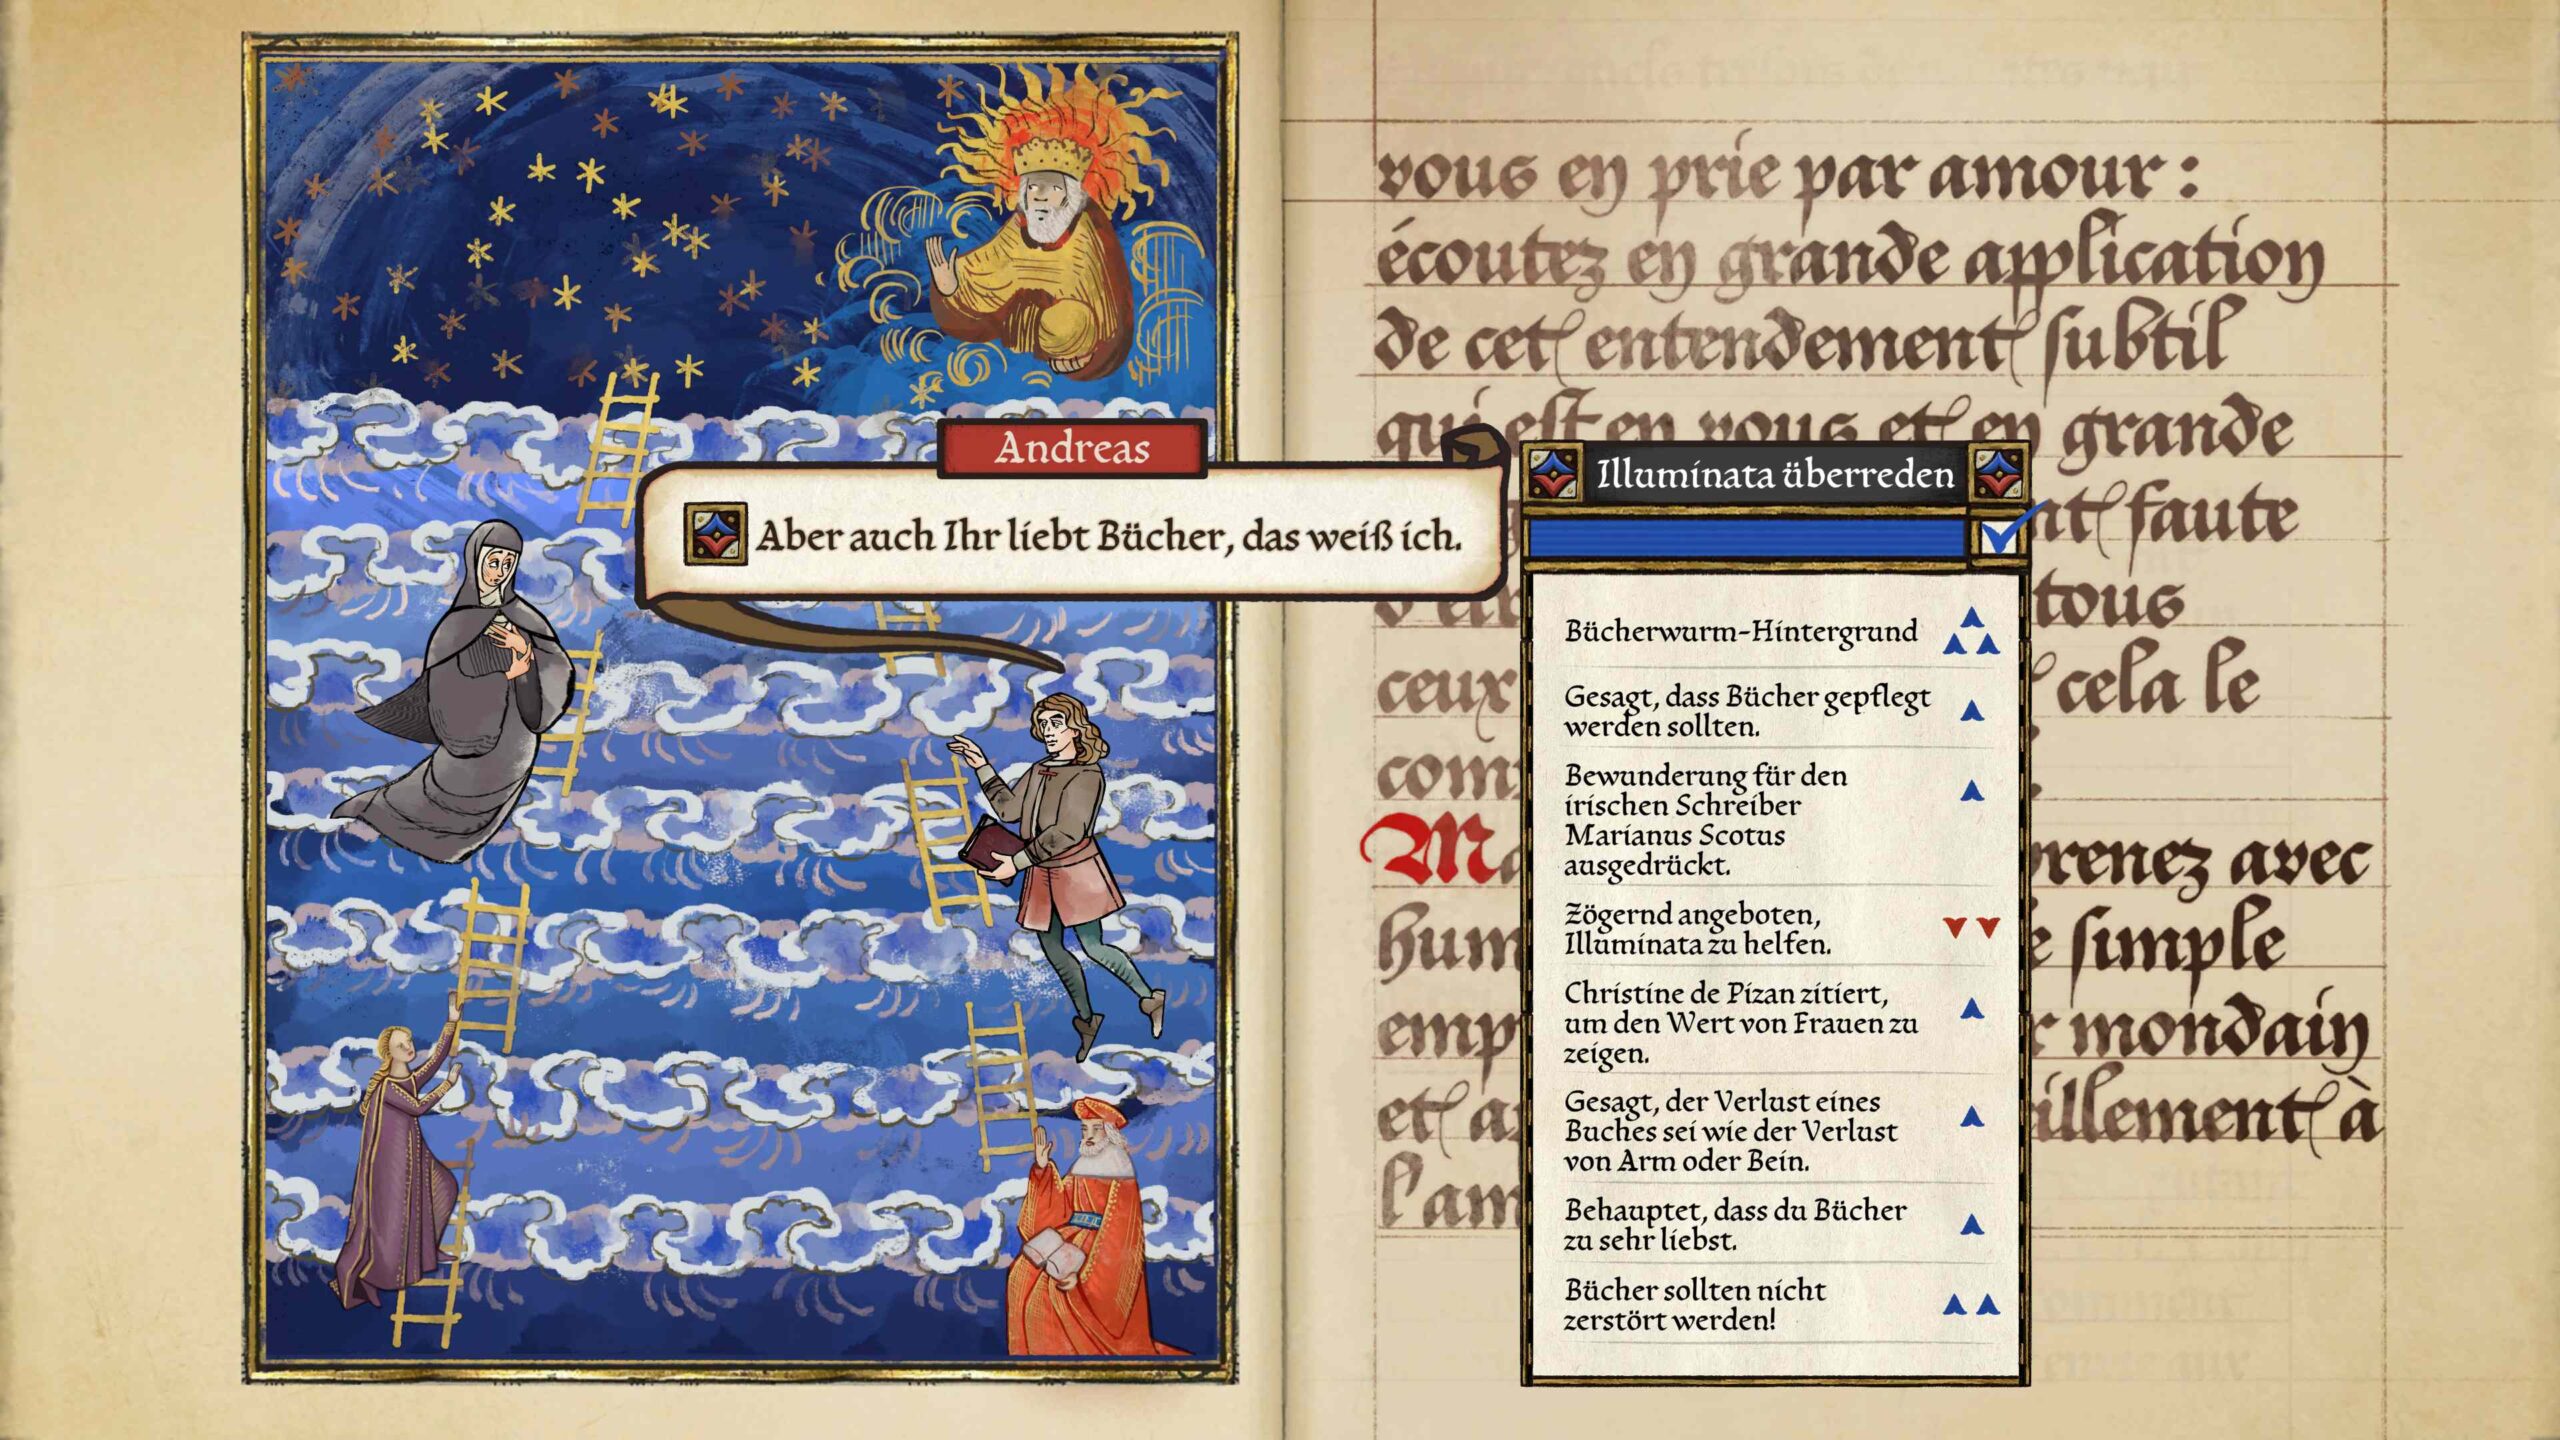 vous en prie par amour :
écoutez en grande application
de cet entendement subtil
qui est en vous et en grande
nt faute
tous
ceux cela le
com
renez avec
hum e simple
emp r mondain
et a illement à
l'am
Andreas
Aber auch Ihr liebt Bücher, das weiß ich.
Illuminata überreden
Bücherwurm-Hintergrund
Gesagt, dass Bücher gepflegt
werden sollten.
Bewunderung für den
irischen Schreiber
Marianus Scotus
ausgedrückt.
Zögernd angeboten,
Illuminata zu helfen.
Christine de Pizan zitiert,
um den Wert von Frauen zu
zeigen.
Gesagt, der Verlust eines
Buches sei wie der Verlust
von Arm oder Bein.
Behauptet, dass du Bücher
zu sehr liebst.
Bücher sollten nicht
zerstört werden!